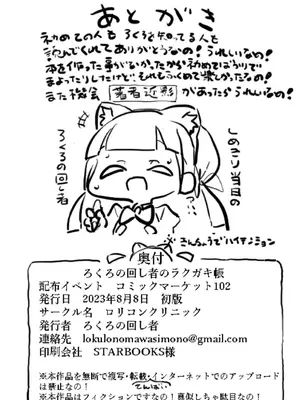 あとがき
初めての人も ろくろを知ってる人も
読んでくれてありがとうなの！うれしいなの！
本を作った事がないから初めてばかりで
まよったりしたけど それもふくめて楽しかったなの！
また機会があったらうれしいなの！
著者近影
しめきり当日の
ろくろの回し者
きんちょうでハイテンション
奥付
ろくろの回し者のラクガキ帳
配布イベント コミックマーケット102
発行日 2023年8月8日 初版
サークル名 ロリコンクリニック
発行者 ろくろの回し者
連絡先 lokulonomawasimono@gmail.com
印刷会社 STARBOOKS様
※本作品を無断で複写・転載・インターネットでのアップロード
は禁止なの！
てんさい
※本作品はフィクションですなの！真似しちゃ駄目なの！